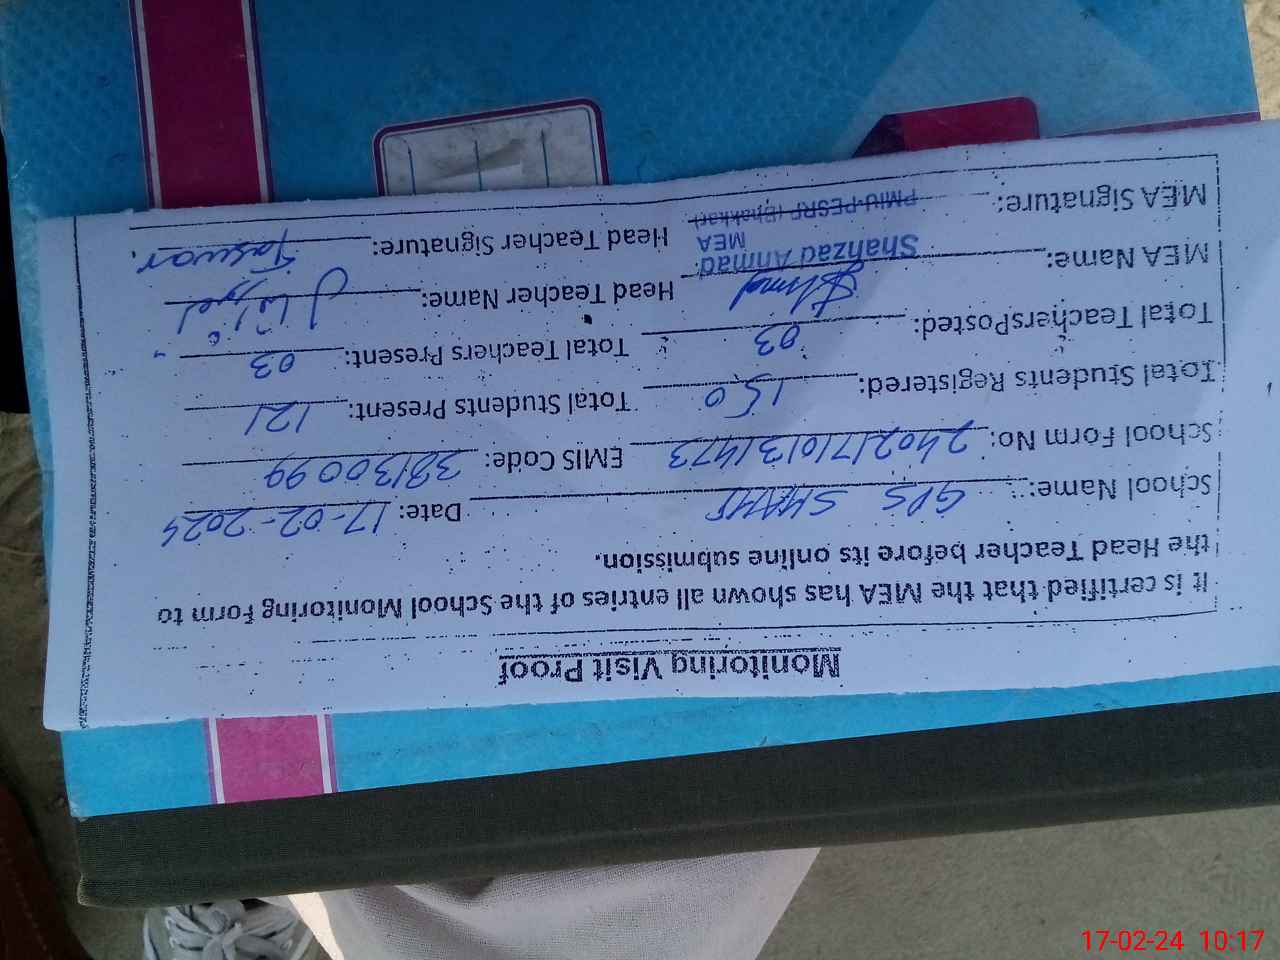 Monitoring Visit Proof
It is certified that the MEA has shown all entries of the School Monitoring Form to
the Head Teacher before its online submission.
School Name: GPS SHAHI Date: 17-02-2024
School Form No: 24021710131473 EMIS Code: 38130099
Total Students Registered: 150 Total Students Present: 121
Total TeachersPosted: 03 Total Teachers Present: 03
MEA Name: Head Teacher Name:
Shahzad Ahmad
MEA
PMIU-PESRP (Bhakkar)
MEA Signature: Head Teacher Signature: Taswar
17-02-24 10:17